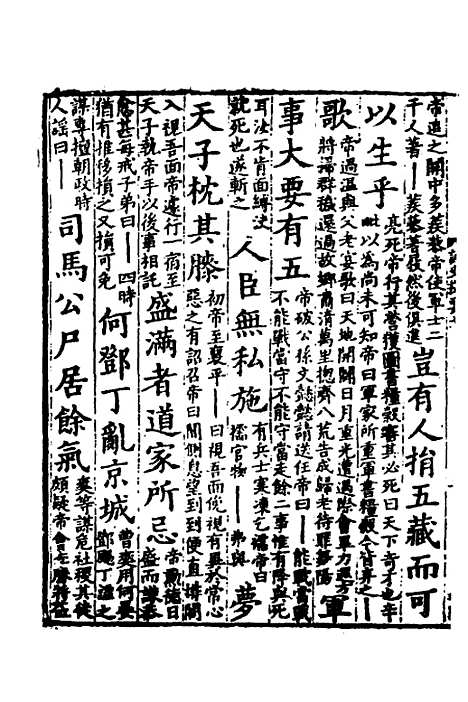 帝追之關中多蒺藜帝使軍士二
千人著——蒺藜著屐然後俱進
豈有人捎五藏而可
以生乎
亮死帝行其營壘圖書糧穀審其必死曰天下奇才也辛
毗以為尚未可知帝曰軍家所重軍書糧穀今皆棄之——
歌
帝過溫與父老宴歌曰天地開闢日月重光遭遇際會畢力遐方
將掃群穢還過故鄉肅清萬里總齊八荒告成歸老待罪舞陽
軍
事大要有五
帝破公孫文懿懿請送任帝曰——能戰當戰
不能戰當守不能守當走餘二事惟有降與死
耳汝不肯面縛決
就死也遂斬之
人臣無私施
有兵士寒凍乞襦帝曰
襦官物——弗與
夢
天子枕其膝
初帝至襄平——曰視吾面俛視有異於常心
惡之有詔召帝曰間側息望到到便直排閤
入視吾面帝遽行一宿至
天子執帝手以後事相託
盛滿者道家所忌
帝勳德日
盛而謙恭
愈甚每戒子弟曰——四時
猶有推移損之又損可免
何鄧丁亂京城
曹爽用何晏
鄧颺丁謐之
謀專擅朝政時
人謠曰——
司馬公尸居餘氣
爽等謀危社稷
頗疑帝會